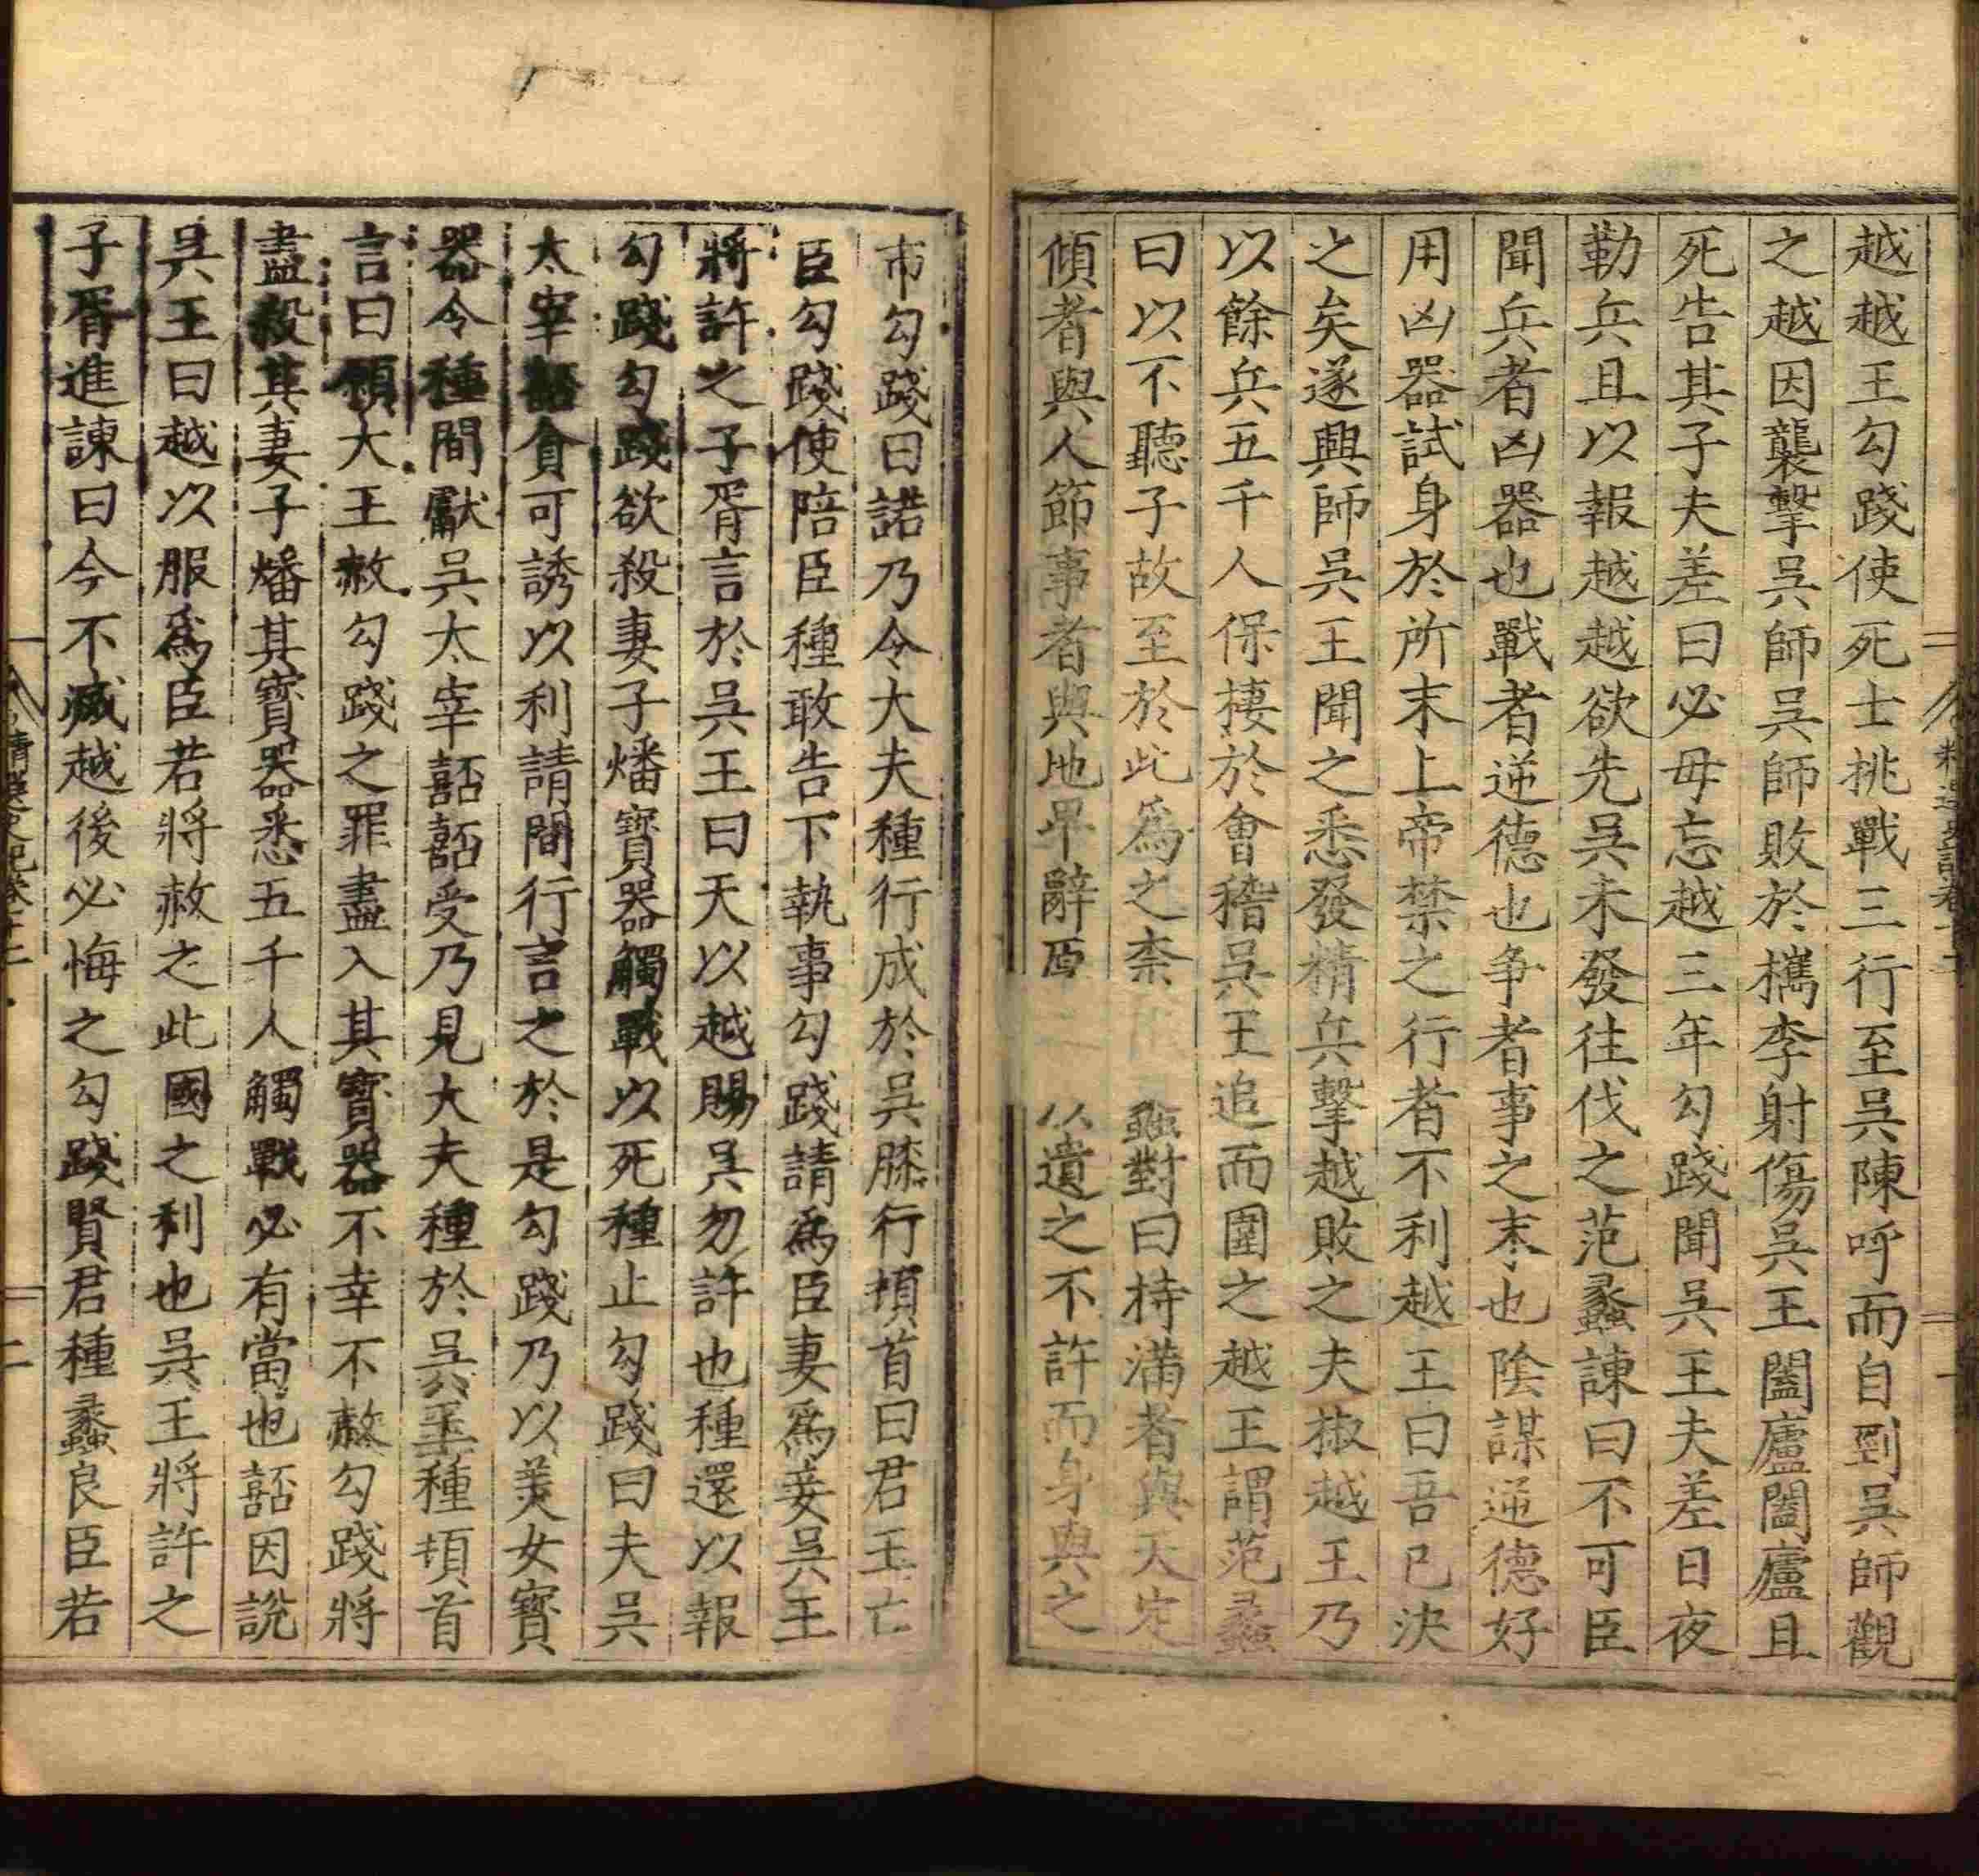 越越王勾踐使死士挑戰三行至吳陳呼而自剄吳師觀
之越因襲擊吳師吳師敗於檇李射傷吳王闔廬闔廬且
死告其子夫差曰必毋忘越三年勾踐聞吳王夫差日夜
勒兵且以報越越欲先吳未發往伐之范蠡諫曰不可臣
聞兵者凶器也戰者逆德也争者事之末也陰謀逆德好
用凶器試身於所末上帝禁之行者不利越王曰吾已決
之矣遂興師吳王聞之悉發精兵擊越敗之夫椒越王乃
以餘兵五千人保棲於會稽吳王追而圍之越王謂范蠡
曰以不聽子故至於此為之柰 蠡對曰持滿者與天定
傾者與人節事者與地卑辭厚 以遺之不許而身與之
市勾踐曰諾乃令大夫種行成於吳膝行頓首曰君王亡
臣勾踐使陪臣種敢告下執事勾踐請爲臣妻爲妾吳王
將許之子胥言於吳王曰天以越賜吳勿許也種還以報
勾踐勾踐欲殺妻子燔寶器觸戰以死種止勾踐曰夫吳
太宰嚭貪可誘以利請間行言之於是勾踐乃以美女寶
器令種間獻吳太宰嚭嚭受乃見大夫種於吳王種頓首
言曰願大王赦勾踐之罪盡入其寶器不幸不赦勾踐將
盡殺其妻子燔其寶器悉五千人觸戰必有當也嚭因說
吳王曰越以服爲臣若將赦之此國之利也吳王將許之
子胥進諫曰今不滅越後必悔之勾踐賢君種蠡良臣若
二